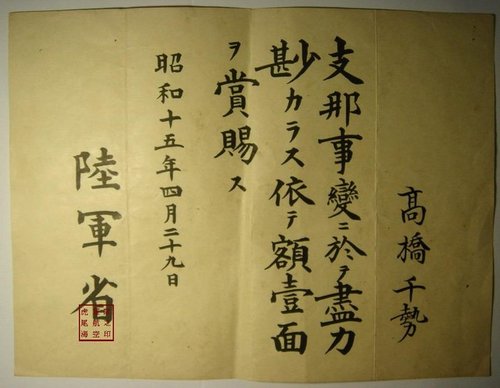 髙橋千勢
支那事變ニ於テ盡力
尠カラス依テ額壹面
ヲ賞賜ス
昭和十五年四月二十九日
陸軍省
虎尾海
航空
之印